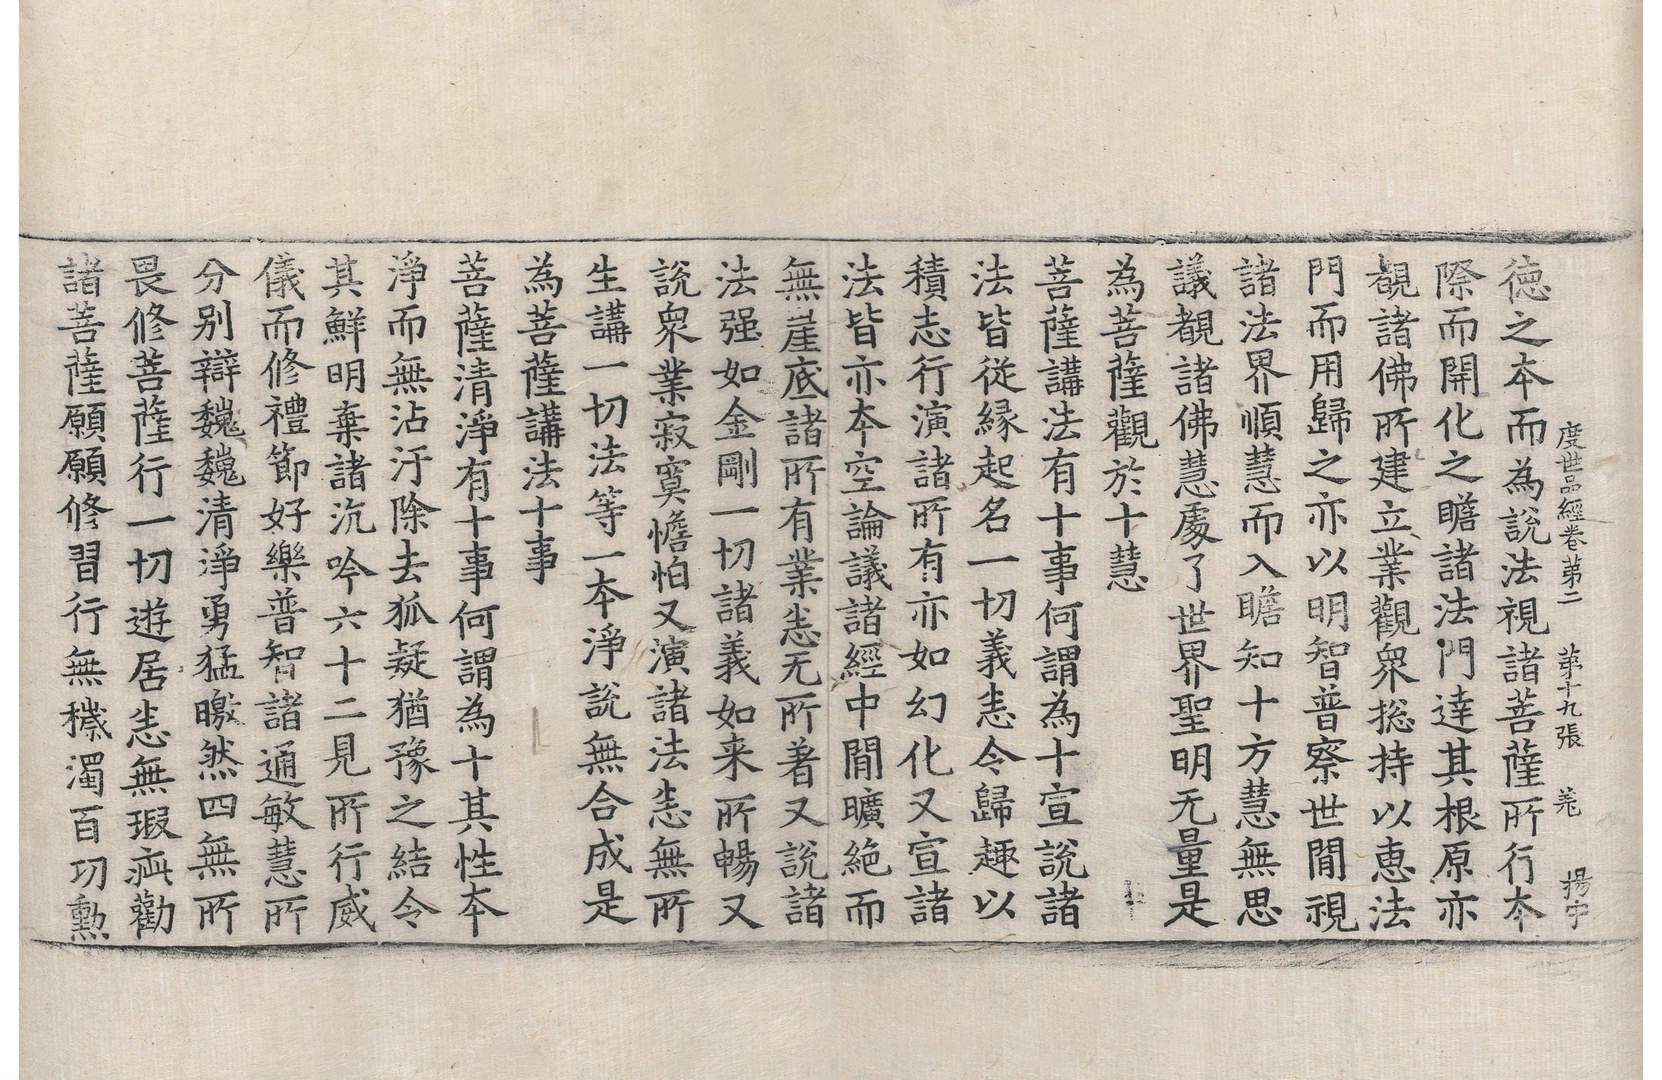 度世品經卷第二 第十九張 羌
德之本而為說法視諸菩薩所行本
際而開化之瞻諸法門達其根原亦
覩諸佛所建立業觀衆捴持以恵法
門而用歸之亦以明智普察世間視
諸法界順慧而入瞻知十方慧無思
議覩諸佛慧處了世界聖明无量是
為菩薩觀於十慧
菩薩講法有十事何謂為十宣說諸
法皆從緣起名一切義恙令歸趣以
積志行演諸所有亦如幻化又宣諸
法皆亦本空論議諸經中間曠絶而
無崖底諸所有業恙无所著又說諸
法强如金剛一切諸義如来所暢又
說衆業寂寞憺怕又演諸法恙無所
生講一切法等一本淨說無合成是
為菩薩講法十事
菩薩清淨有十事何謂為十其性本
淨而無沾汙除去狐疑猶豫之結令
其鮮明棄諸沉吟六十二見所行威
儀而修禮節好樂普智諸通敏慧所
分別辯巍巍清淨勇猛曒然四無所
畏修菩薩行一切遊居恙無瑕疵勸
諸菩薩願願修習行無穢濁百功勲